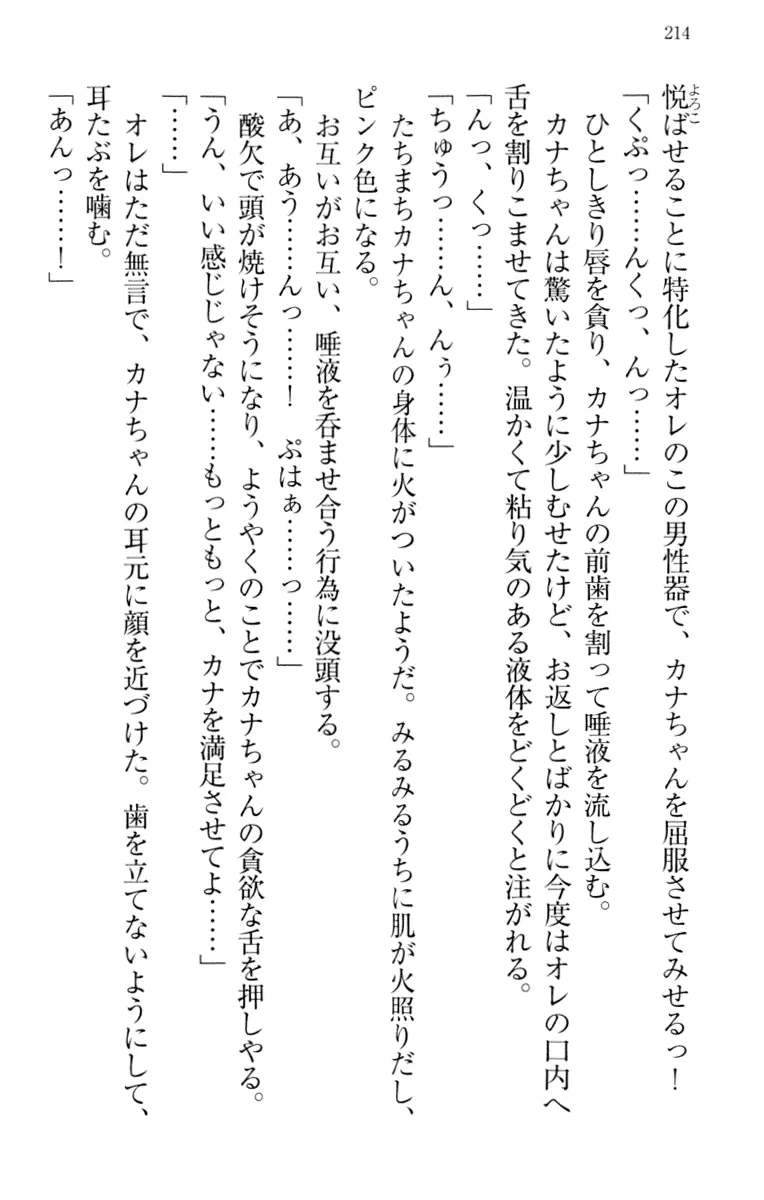 214
悦ばせることに特化したオレのこの男性器で、カナちゃんを屈服させてみせるっ！
よろこ
「くぷっ……んくっ、んっ……」
ひとしきり唇を貪り、カナちゃんの前歯を割って唾液を流し込む。
カナちゃんは驚いたように少しむせたけど、お返しとばかりに今度はオレの口内へ
舌を割りこませてきた。温かくて粘り気のある液体をどくどくと注がれる。
「んっ、くっ……」
「ちゅうっ……ん、んぅ……」
たちまちカナちゃんの身体に火がついたようだ。みるみるうちに肌が火照りだし、
ピンク色になる。
お互いがお互い、唾液を呑ませ合う行為に没頭する。
「あ、あう……んっ……！　ぷはぁ……っ……」
酸欠で頭が焼けそうになり、ようやくのことでカナちゃんの貪欲な舌を押しやる。
「うん、いい感じじゃない……もっともっと、カナを満足させてよ……」
「……」
オレはただ無言で、カナちゃんの耳元に顔を近づけた。歯を立てないようにして、
耳たぶを噛む。
「あんっ……！」